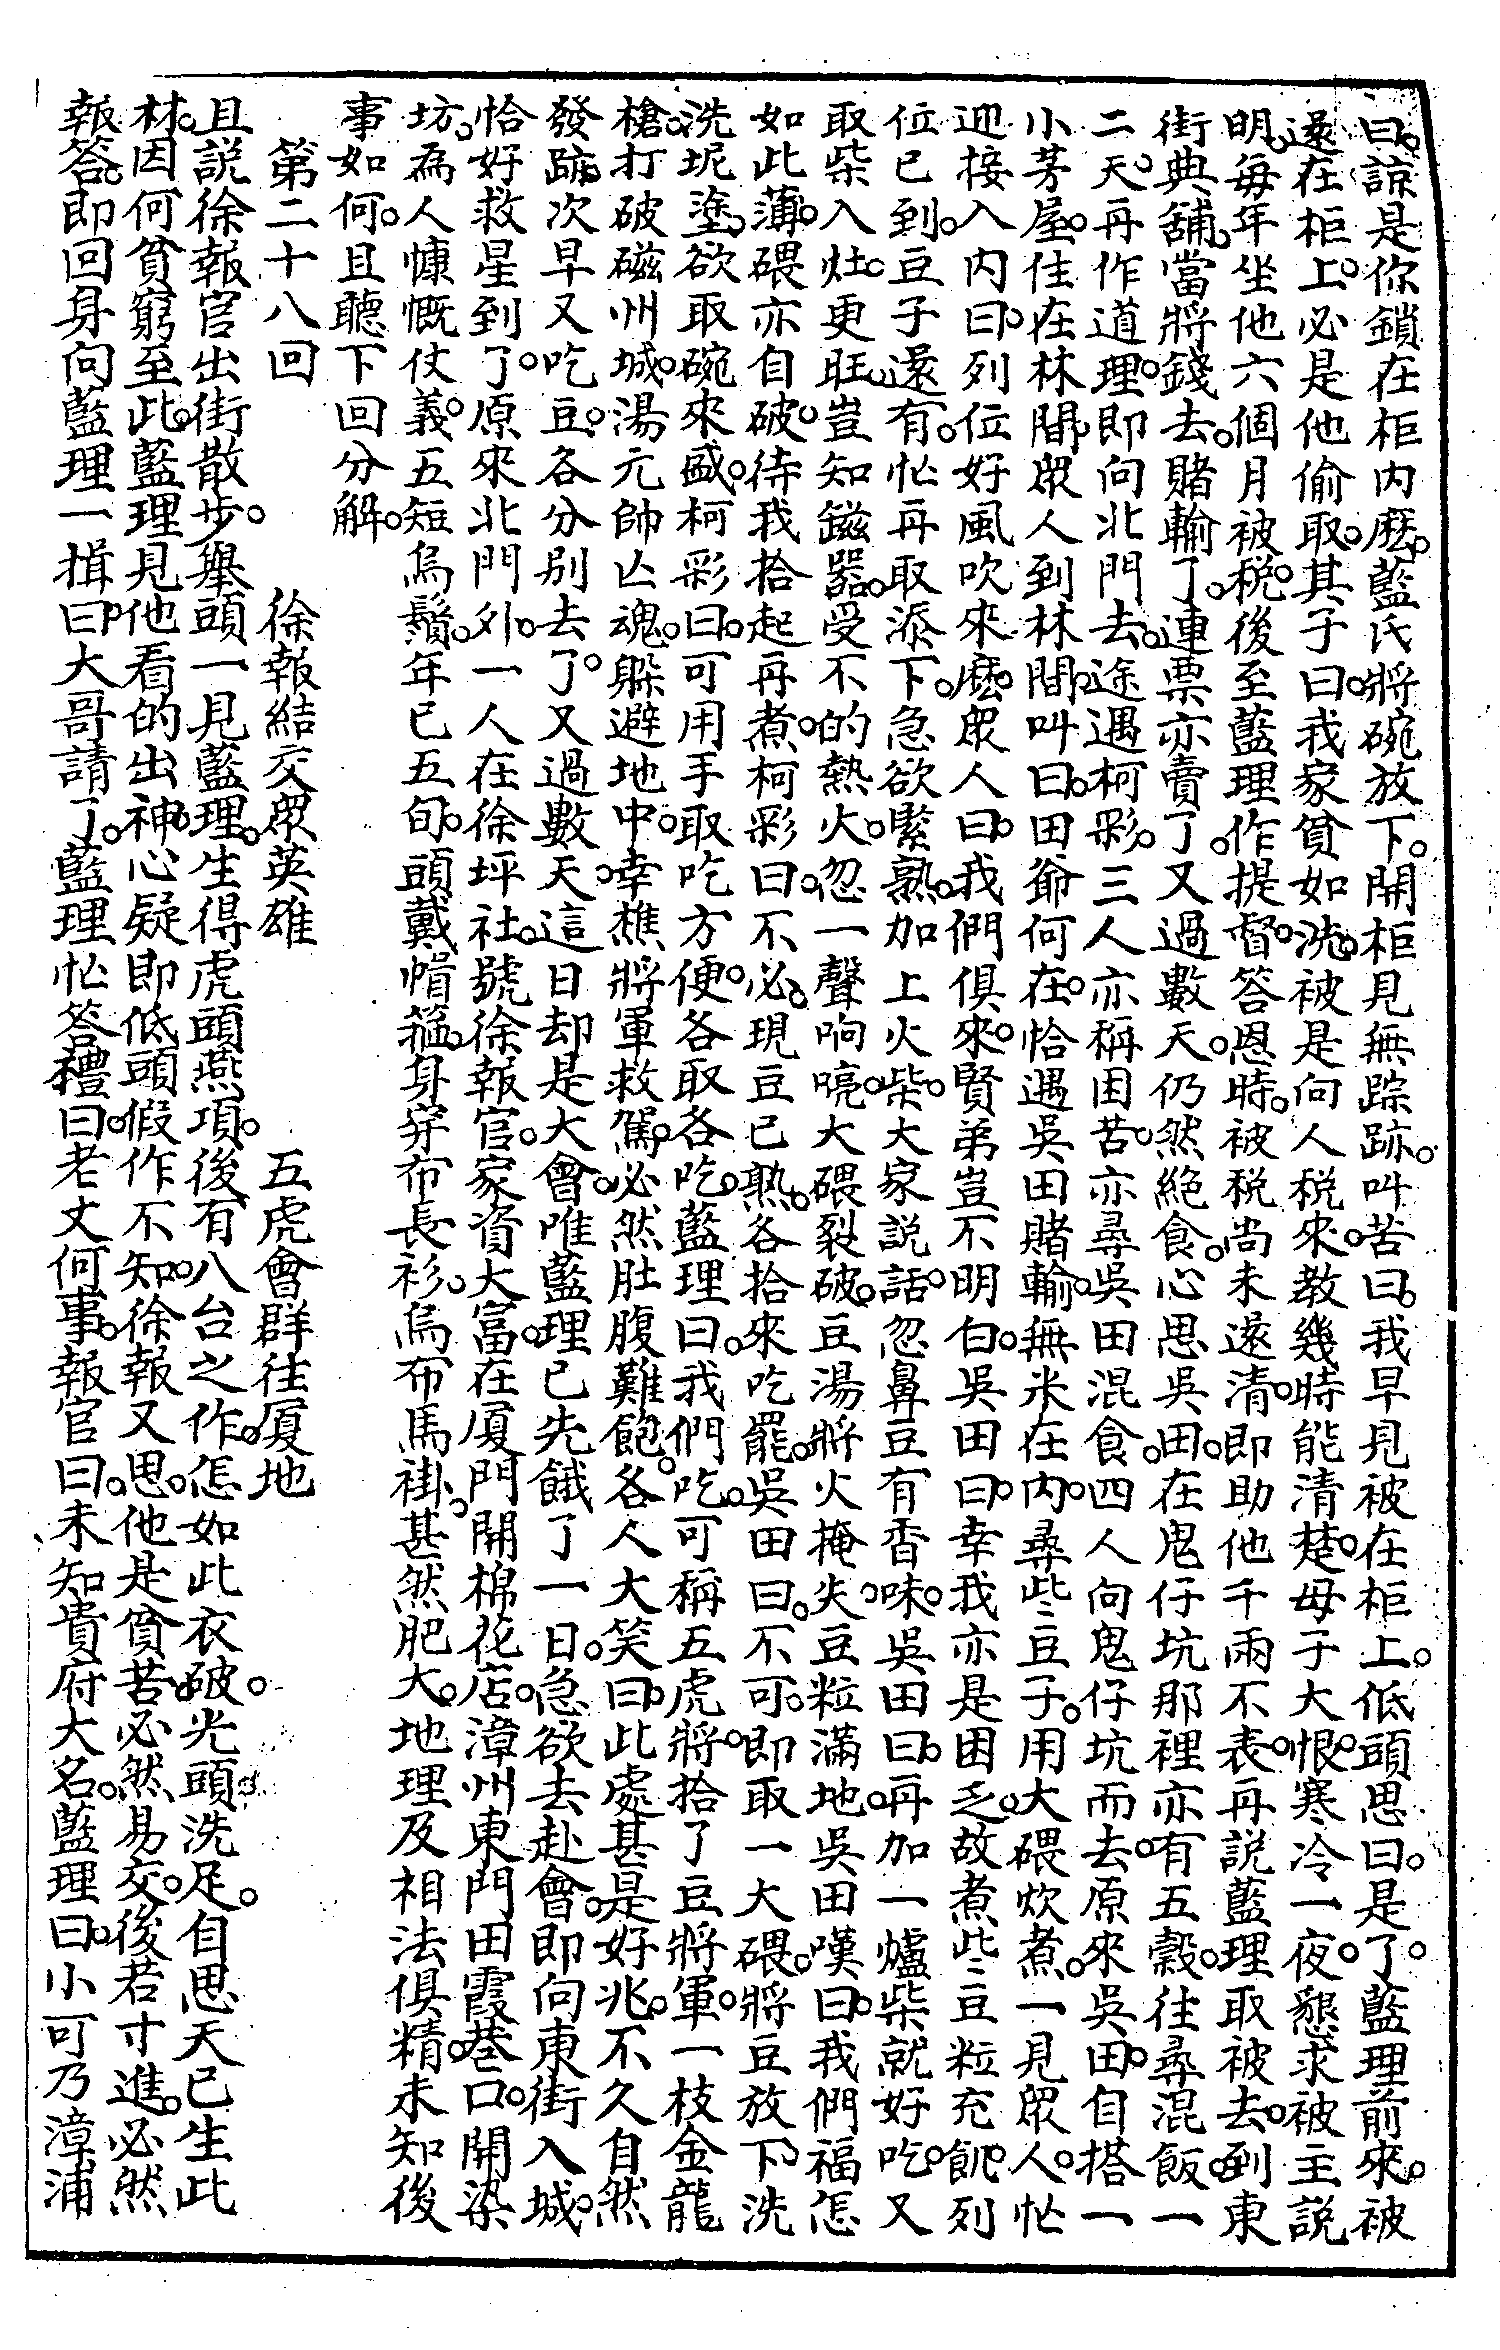 曰。諒是你鎖在柜内麽。藍氏將碗放下。開柜見無踪跡。叫苦曰。我早見被在柜上。低頭思曰。是了。藍理前來。被
還在柜上。必是他偷取。其子曰。我家貧如洗。被是向人税來。教幾時能清楚。母子大恨。寒冷一夜。懇求被主説
明。每年坐他六個月被税。後至藍理作提督。答恩時。被税尚未還清。即助他千兩不表。再説藍理取被去。到東
街典舖。當將錢去。賭輸了。連票亦賣了。又過數天。仍然絶食。心思吳田。在鬼仔坑那裡。亦有五穀。往尋混飯。一
二天。再作道理。即向北門去。途遇柯彩。三人亦稱困苦。亦尋吳田混食。四人向鬼仔坑而去。原來吳田。自搭一
小茅屋。住在林間。眾人到林間。叫曰。田爺何在。恰遇吳田賭輸。無米在内。尋些些豆子。用大碨炊煮。一見眾人。忙
迎接入内曰。列位好風吹來麽。眾人曰。我們俱來。賢弟豈不明白。吳田曰。幸我亦是困乏。故煮些些豆粒充飢。列
位已到。豆子還有。忙再取添下。急欲緊熟。加上火柴。大家説話。忽鼻豆有香味。吳田曰。再加一爐柴就好吃。又
取柴入灶。更旺。豈知鎡器。受不的熱火。忽一聲响喨。大碨裂破。豆湯將火掩失。豆粒滿地。吳田嘆曰。我們福怎
如此薄。碨亦自破。待我拾起再煮。柯彩曰。不必。現豆已熟。各拾來吃罷。吳田曰。不可。即取一大碨。將豆放下。洗
洗坭塗。欲取碗來盛。柯彩曰。可用手取吃方便。各取各吃。藍理曰。我們吃。可稱五虎將。拾了豆將軍。一枝金龍
槍。打破磁州城。湯元帥亡魂。躲避地中。幸樵將軍救駕。必然肚腹難飽。各人大笑曰。此處甚是好兆。不久自然
發蹠。次早又吃豆。各分别去了。又過數天。這日却是大會。唯藍理已先餓了一日。急欲去赴會。即向東街入城。
恰好救星到了。原來北門外。一人在徐坪社。號徐報官。家資大富。在厦門開棉花店。漳州東門田霞巷口。開染
坊。為人慷慨仗義。五短烏鬚。年已五旬。頭戴帽箍。身穿布長衫。烏布馬褂。甚然肥大。地理及相法俱精。未知後
事如何。且聽下回分解。
第二十八回 徐報結交眾英雄 五虎會群往厦地
且説徐報官出街散步。舉頭一見藍理。生得虎頭燕項。後有八台之作。怎如此衣破。光頭洗足。自思天已生此
林。因何貧窮至此。藍理見他看的出神。心疑即低頭假作不知。徐報又思。他是貧苦。必然易交。後若寸進。必然
報答。即回身向藍理一揖曰。大哥請了。藍理忙答禮曰。老丈何事。報官曰。未知貴府大名。藍理曰。小可乃漳浦